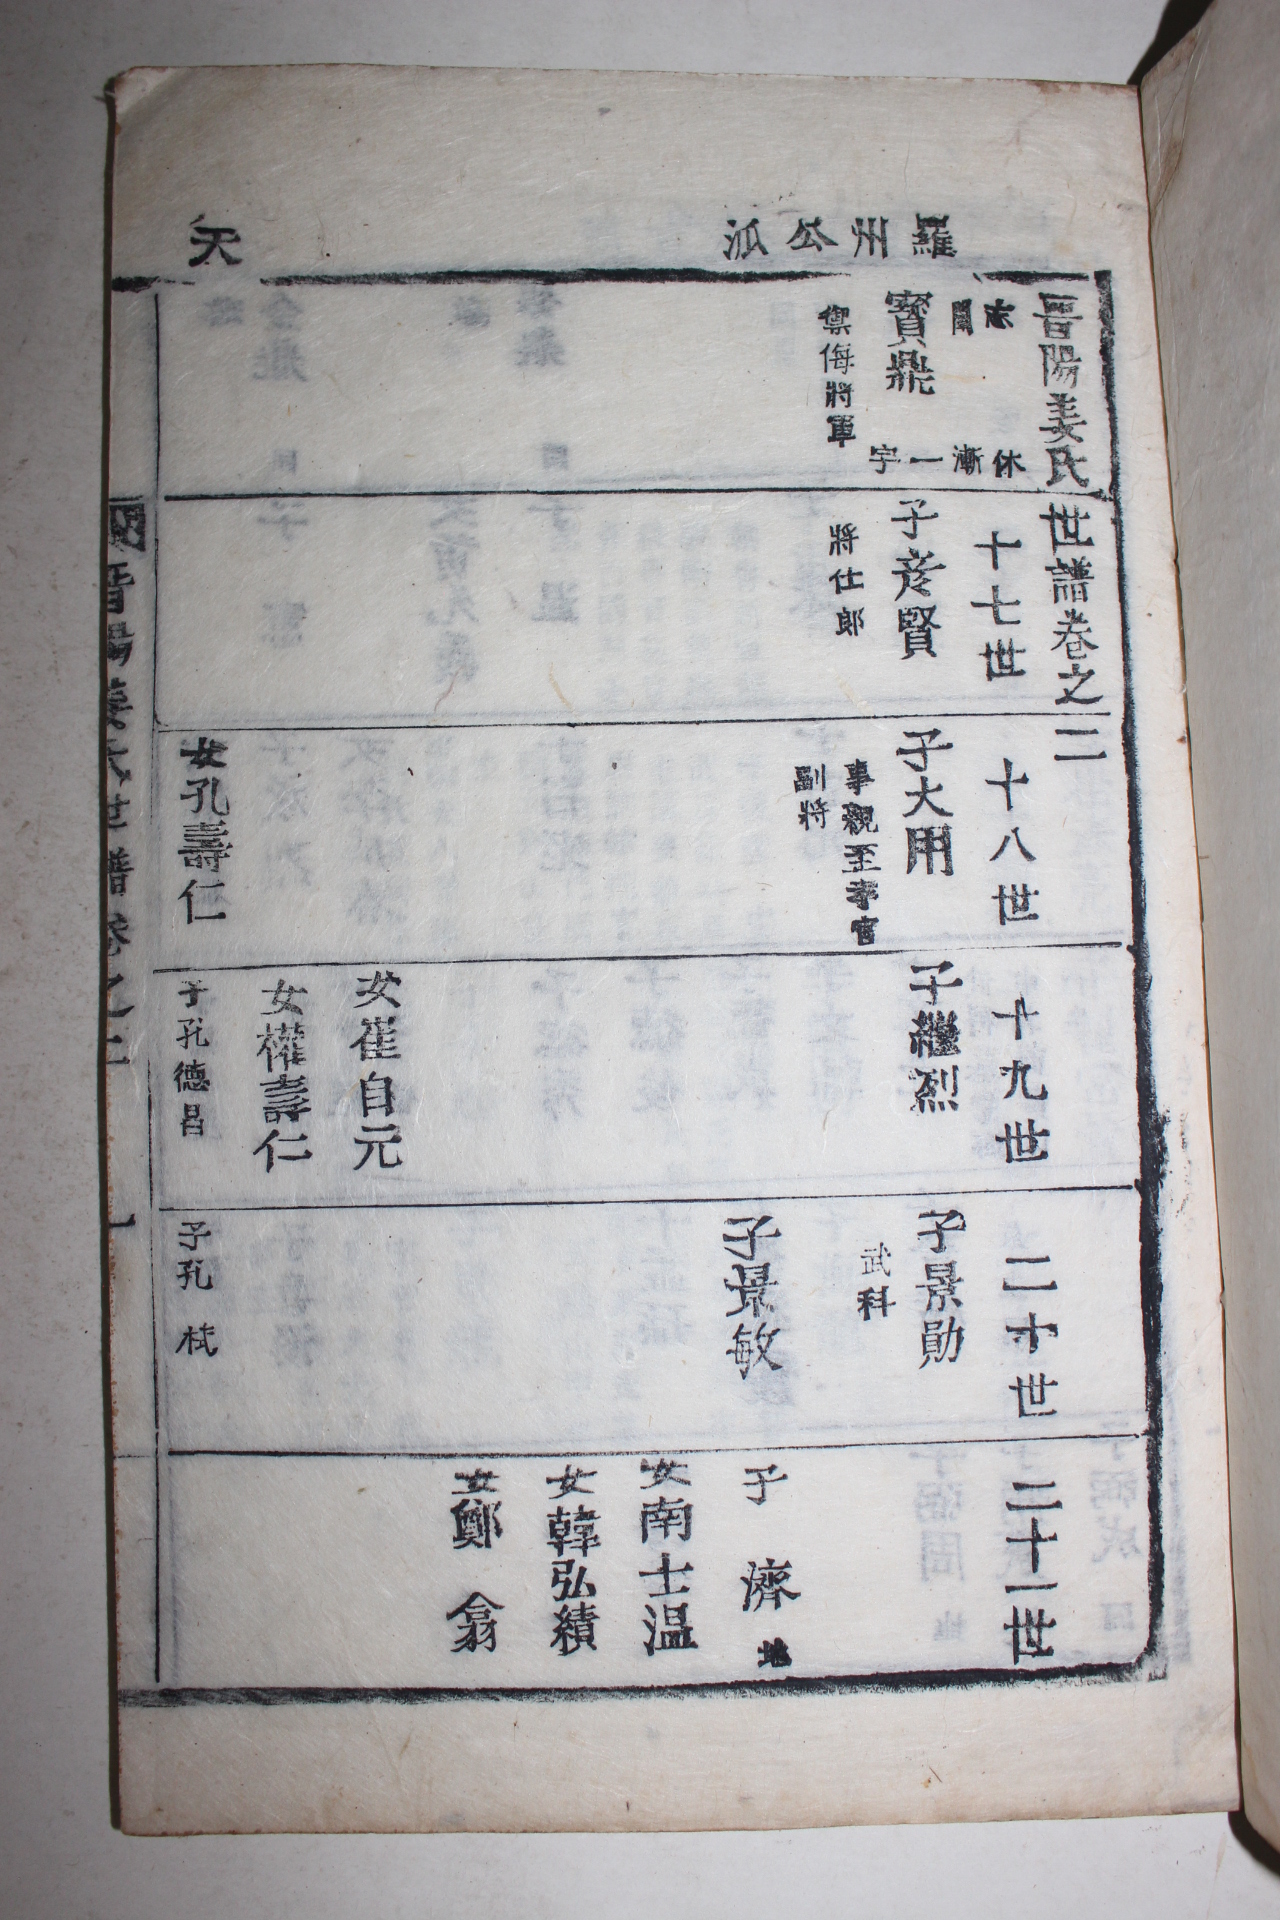 羅州公派
天
晋陽姜氏世譜卷之二
十七世
十八世
十九世
二十世
二十一世
寶鼎
禦侮將軍
一字
子彦賢
將仕郎
子大用
事親至孝官
副將
女孔壽仁
子繼烈
女崔自元
女權壽仁
子孔德昌
子景勛
武科
子景敏
子孔 栻
子 濟 地
女南士温
女韓弘績
女鄭 翕
晋陽姜氏世譜卷之二
一